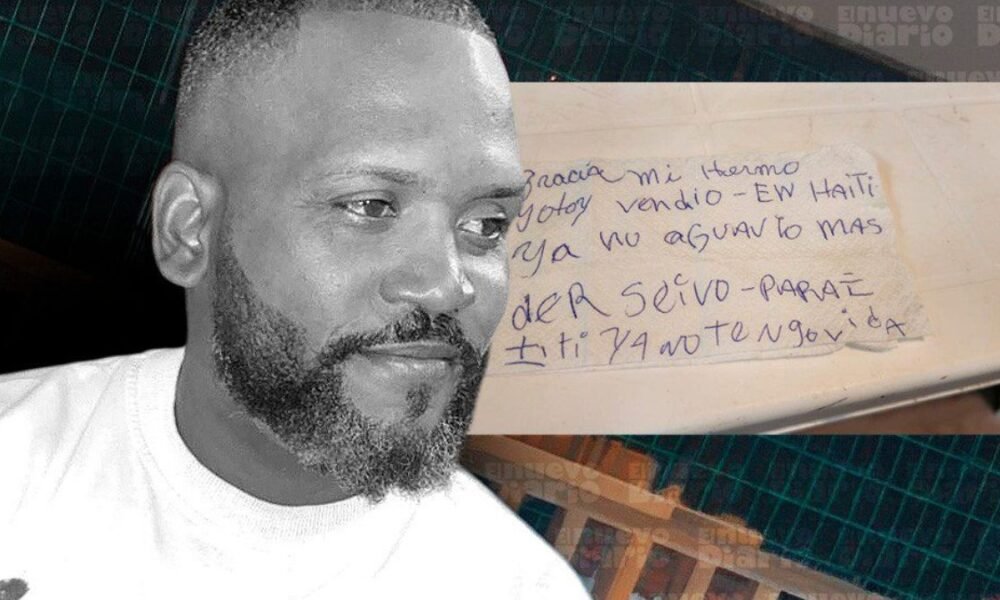 El nuevo
Diario
Gracia mi Hermo
yotoy vendio - EN HAITI
ya NO aGUANTo MAS
deR Seivo - PARAE
titi YA NO TENgo vidA
El nuevo
Diario